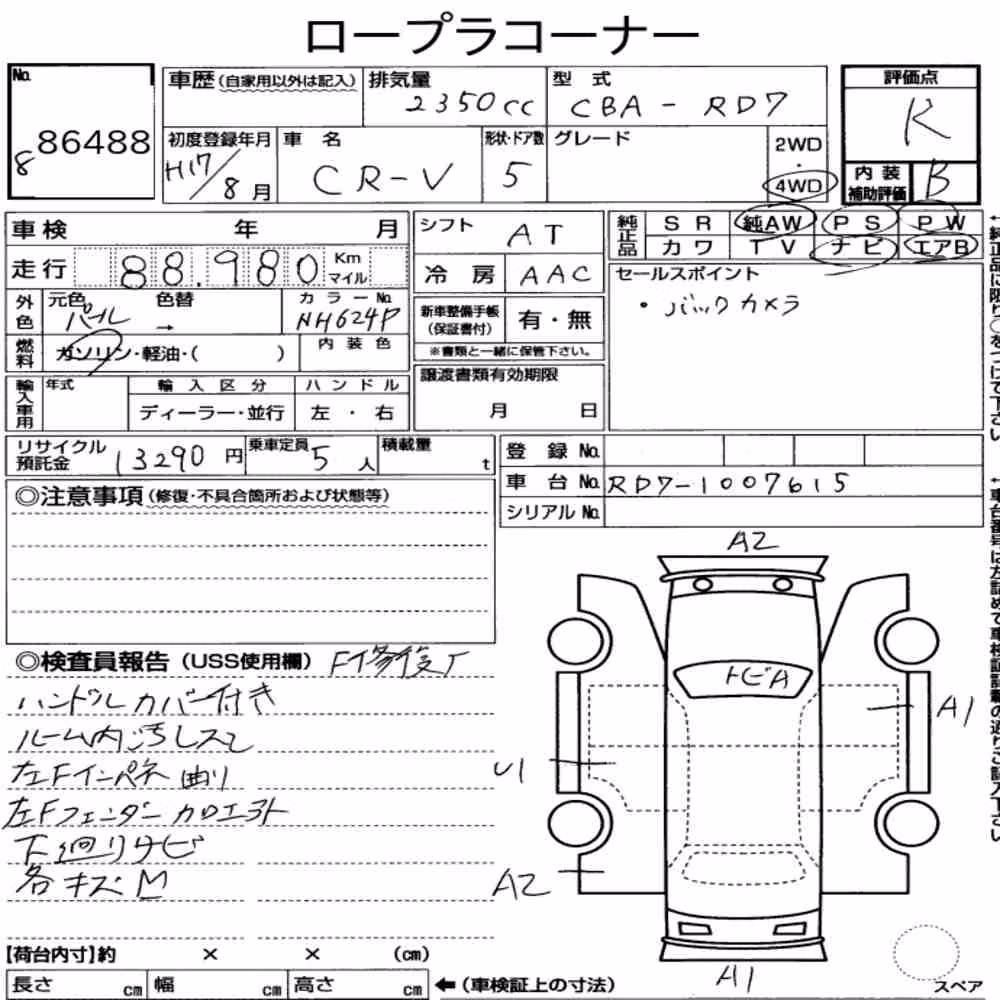 ロープラコーナー
No. 8 86488
車歴(自家用以外は記入) 排気量 2350cc 型式 CBA-RD7 評価点 R
初度登録年月 H17/8月 車名 CR-V 形状・ドア数 5 グレード 2WD・4WD 内装補助評価 B
車検 年 月 シフト AT 純正品 SR 純AW PS PW
カワ TV ナビ エアB
走行 88,980 Km マイル 冷房 AAC セールスポイント
・バックカメラ
外色 元色 パール 色替 → カラーNo. NH624P 新車整備手帳(保証書付) 有・無
燃料 ガソリン・軽油・( ) 内装色 ※書類と一緒に保管下さい。
輸入車用 年式 輸入区分 ハンドル 譲渡書類有効期限
ディーラー・並行 左・右 月 日
リサイクル預託金 13290円 乗車定員 5人 積載量 t 登録No.
車台No. RD7-1007615
シリアルNo.
◎注意事項(修復・不具合箇所および状態等)
◎検査員報告(USS使用欄) F修復ナ
ハンドルカバー付き
ルーム内汚レスレ
左Fインパネ曲リ
左Fフェンダーカロエラト
下廻リサビ
各キズM
A2
トビA
A1
U1
A2
A1
【荷台内寸】約 × × (cm)
長さ cm 幅 cm 高さ cm ←(車検証上の寸法)
スペア
↑純正品に限り○をつけて下さい
↑車台番号は左詰めで車検証記載の通りご記入下さい